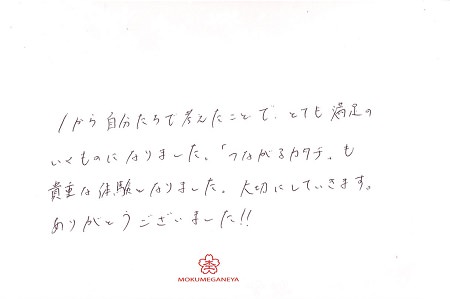 1から自分たちで考えたことで、とても満足の
いくものになりました。「つながるカタチ」も
貴重な体験となりました。大切にしていきます。
ありがとうございました!!
MOKUMEGANEYA